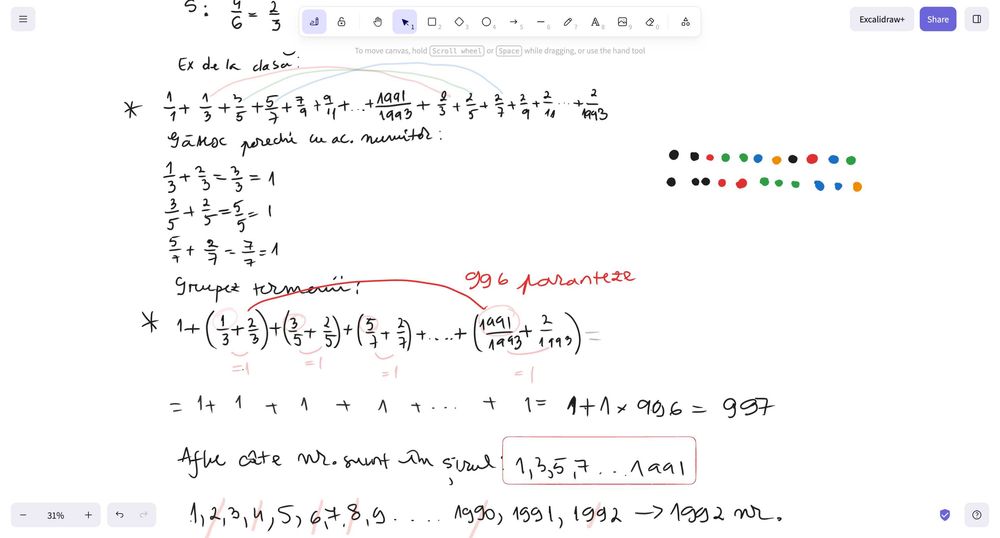 5: 4/6 = 2/3
Excalidraw+ Share
To move canvas, hold Scroll wheel or Space while dragging, or use the hand tool
Ex de la clasă:
* 1/1 + 1/3 + 3/5 + 5/7 + 7/9 + 9/11 + ... + 1991/1993 + 2/3 + 2/5 + 2/7 + 2/9 + 2/11 ... + 2/1993
Găsesc perechi cu ac. numitor:
1/3 + 2/3 = 3/3 = 1
3/5 + 2/5 = 5/5 = 1
5/7 + 2/7 = 7/7 = 1
Grupez termenii:
996 paranteze
* 1 + (1/3 + 2/3) + (3/5 + 2/5) + (5/7 + 2/7) + .... + (1991/1993 + 2/1993) =
=1 =1 =1 =1
= 1 + 1 + 1 + 1 + ... + 1 = 1 + 1 × 996 = 997
Aflu câte nr. sunt în șirul: 1, 3, 5, 7 ... 1991
1, 2, 3, 4, 5, 6, 7, 8, 9 .... 1990, 1991, 1992 → 1992 nr.
31%